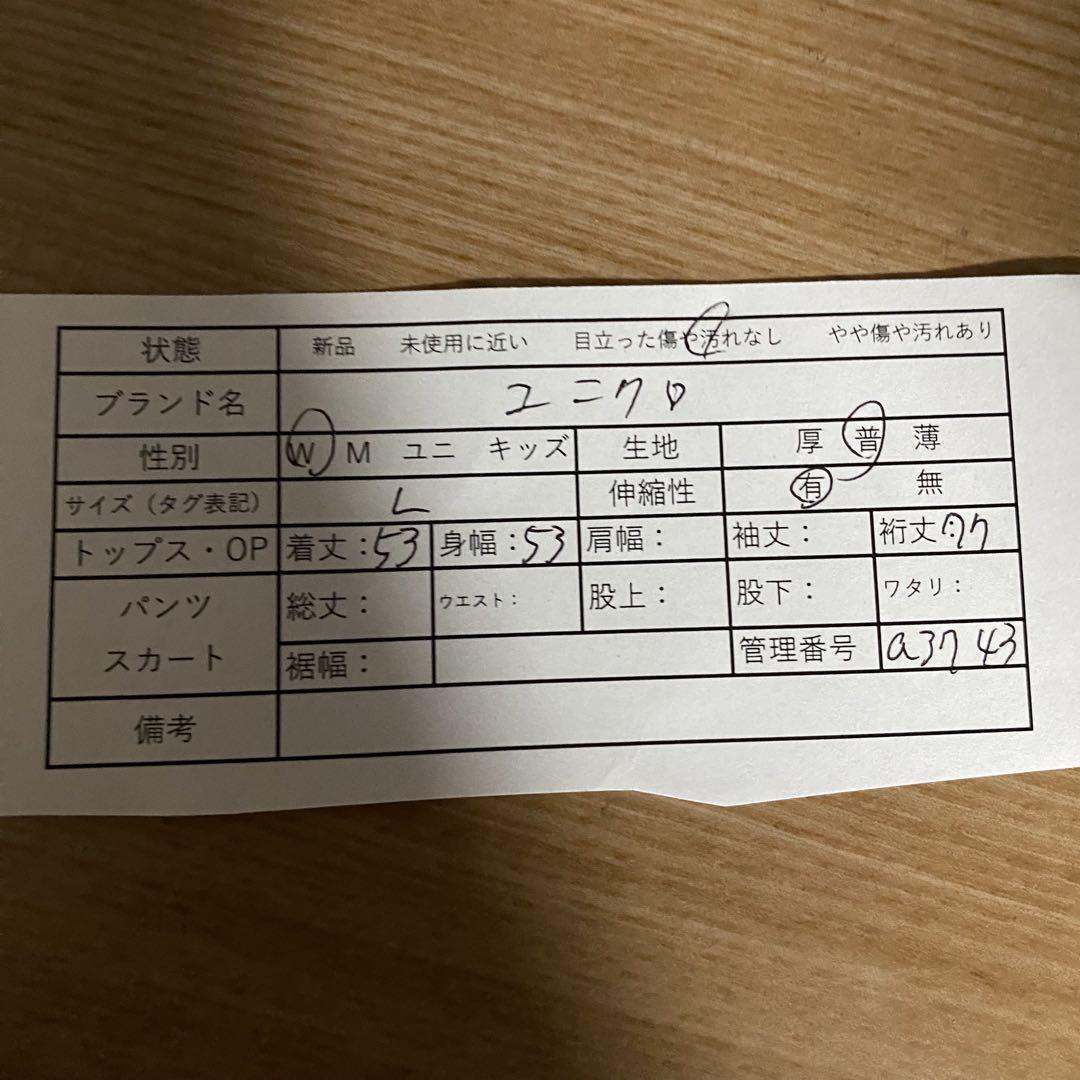 状態 新品 未使用に近い 目立った傷や汚れなし やや傷や汚れあり
ブランド名 ユニクロ
性別 W M ユニ キッズ 生地 厚 普 薄
サイズ（タグ表記） L 伸縮性 有 無
トップス・OP 着丈：53 身幅：53 肩幅： 袖丈： 裄丈：77
パンツ 総丈： ウエスト： 股上： 股下： ワタリ：
スカート 裾幅： 管理番号 a3743
備考